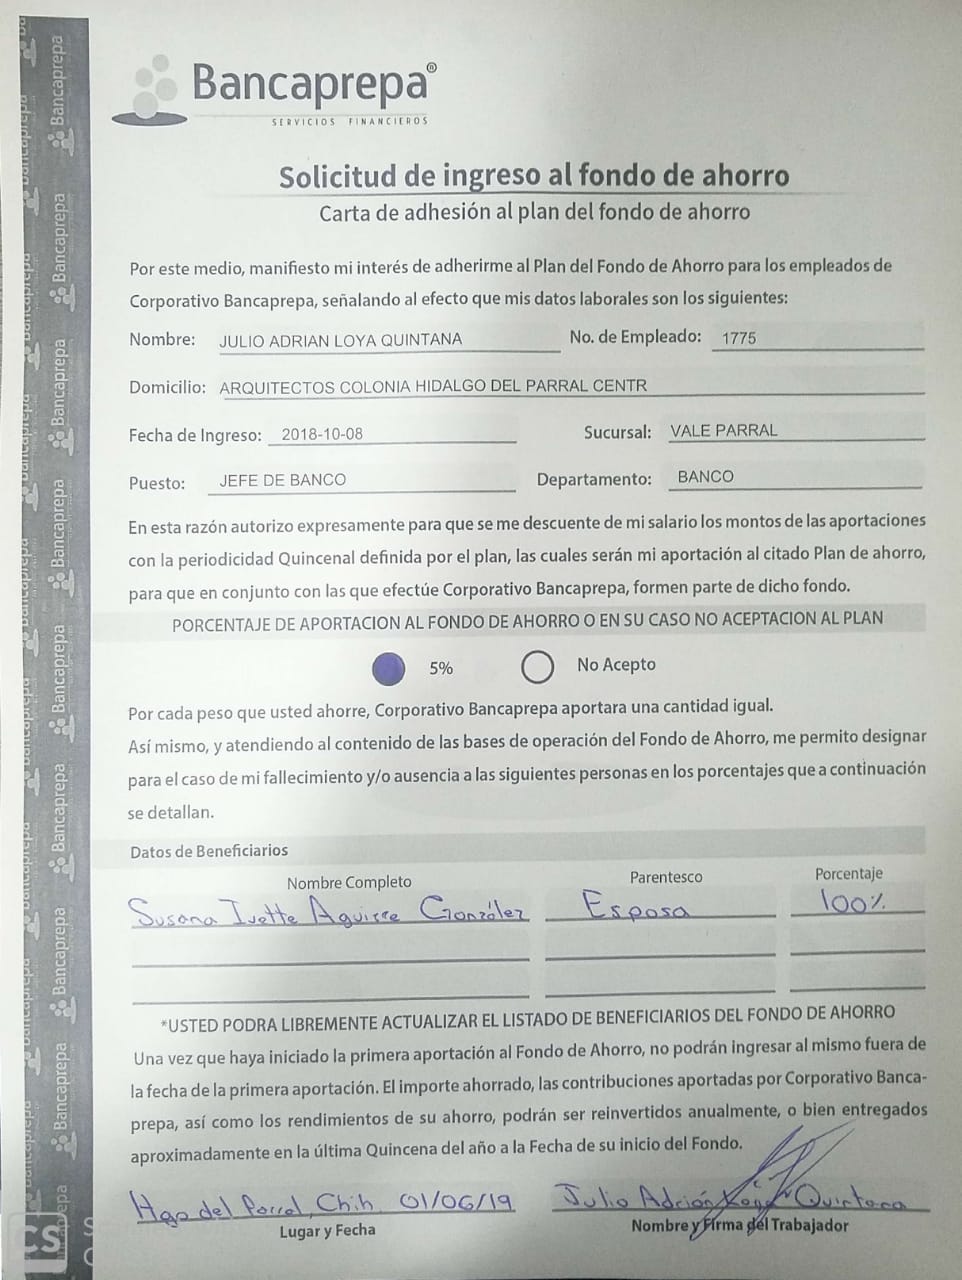 Bancaprepa®
SERVICIOS FINANCIEROS
Solicitud de ingreso al fondo de ahorro
Carta de adhesión al plan del fondo de ahorro
Por este medio, manifiesto mi interés de adherirme al Plan del Fondo de Ahorro para los empleados de
Corporativo Bancaprepa, señalando al efecto que mis datos laborales son los siguientes:
Nombre: JULIO ADRIAN LOYA QUINTANA No. de Empleado: 1775
Domicilio: ARQUITECTOS COLONIA HIDALGO DEL PARRAL CENTR
Fecha de Ingreso: 2018-10-08 Sucursal: VALE PARRAL
Puesto: JEFE DE BANCO Departamento: BANCO
En esta razón autorizo expresamente para que se me descuente de mi salario los montos de las aportaciones
con la periodicidad Quincenal definida por el plan, las cuales serán mi aportación al citado Plan de ahorro,
para que en conjunto con las que efectúe Corporativo Bancaprepa, formen parte de dicho fondo.
PORCENTAJE DE APORTACION AL FONDO DE AHORRO O EN SU CASO NO ACEPTACION AL PLAN
5% No Acepto
Por cada peso que usted ahorre, Corporativo Bancaprepa aportara una cantidad igual.
Así mismo, y atendiendo al contenido de las bases de operación del Fondo de Ahorro, me permito designar
para el caso de mi fallecimiento y/o ausencia a las siguientes personas en los porcentajes que a continuación
se detallan.
Datos de Beneficiarios
Nombre Completo Parentesco Porcentaje
Susana Ivette Aguirre González Esposa 100%
*USTED PODRA LIBREMENTE ACTUALIZAR EL LISTADO DE BENEFICIARIOS DEL FONDO DE AHORRO
Una vez que haya iniciado la primera aportación al Fondo de Ahorro, no podrán ingresar al mismo fuera de
la fecha de la primera aportación. El importe ahorrado, las contribuciones aportadas por Corporativo Banca-
prepa, así como los rendimientos de su ahorro, podrán ser reinvertidos anualmente, o bien entregados
aproximadamente en la última Quincena del año a la Fecha de su inicio del Fondo.
Hgo del Parral, Chih. 01/06/19 Julio Adrián Loya Quintana
Lugar y Fecha Nombre y Firma del Trabajador
Bancaprepa
Bancaprepa
Bancaprepa
Bancaprepa
Bancaprepa
Bancaprepa
Bancaprepa
Bancaprepa
CS